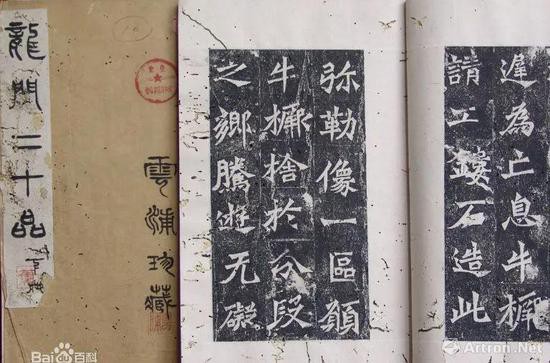 龍門二十品
雲浦珍藏
遲為亡息牛橛
請工鏤石造此
弥勒像一區願
牛橛捨於分段
之鄉騰遊无礙
Bai百科
Artron.Net